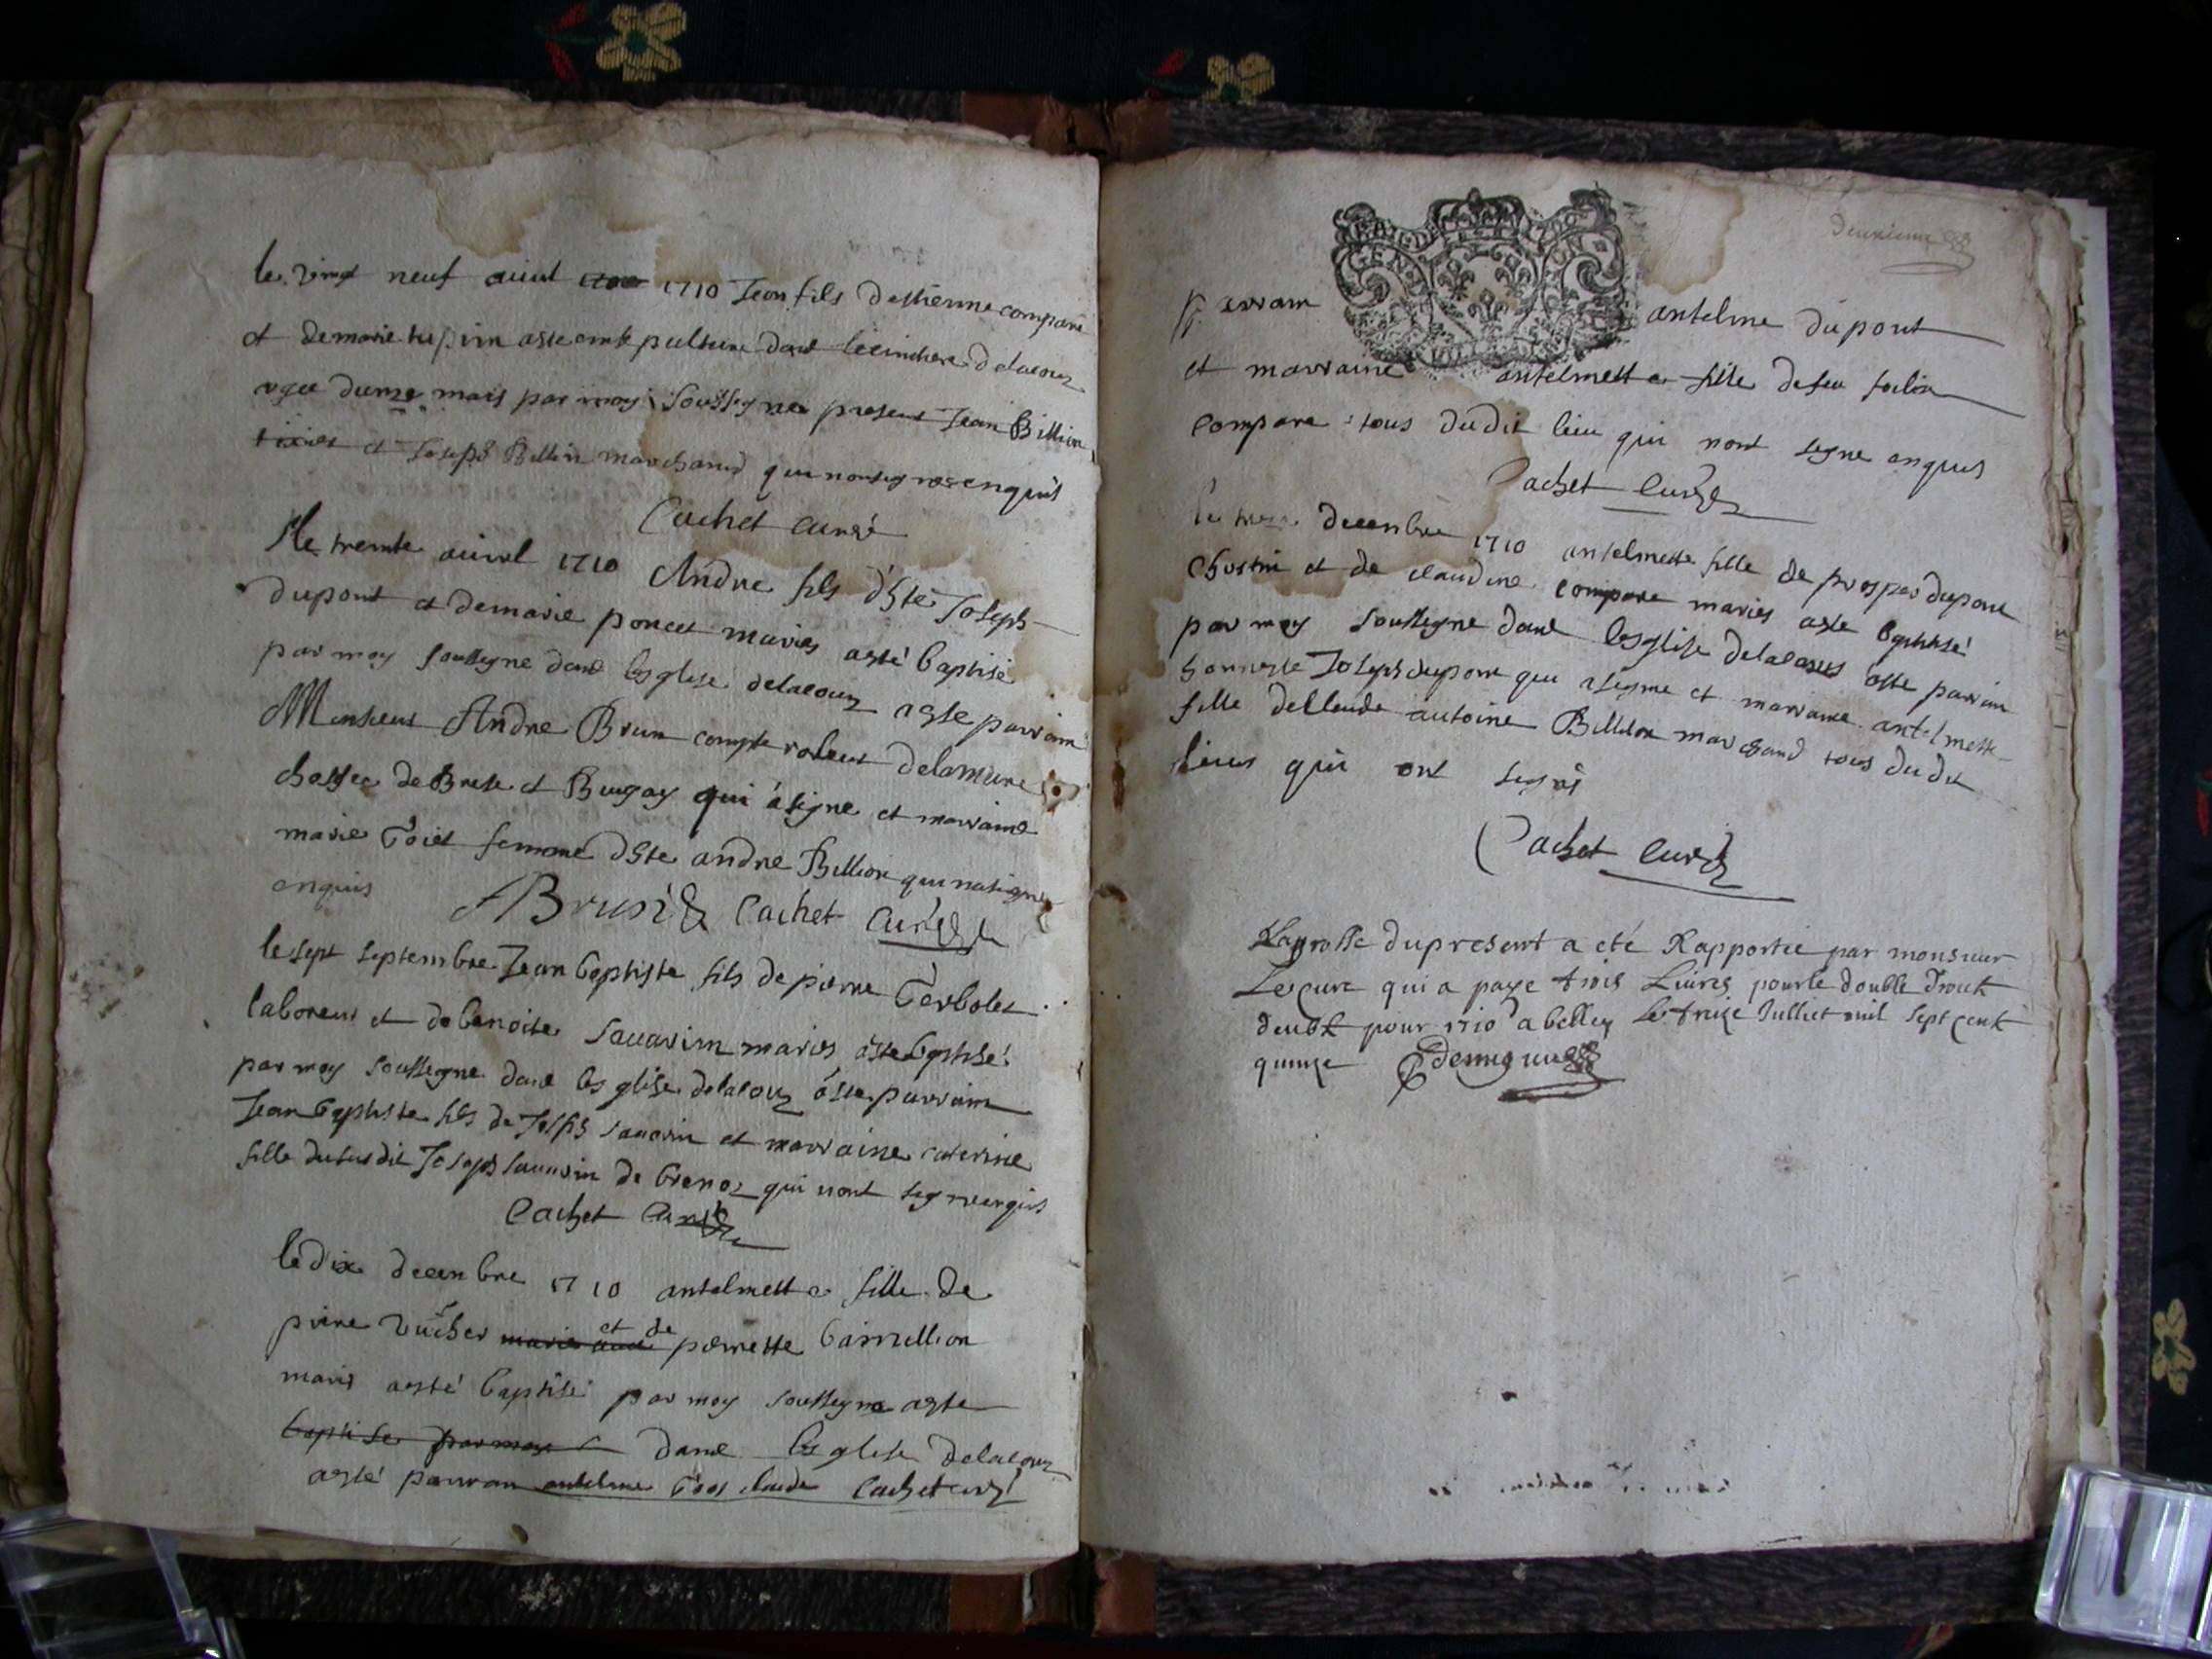 le vingt neuf avril 1710 Jean fils destienne compare
et de marie tupin aste ensepulture dans le cimitiere delacouz
agee dunze mais par moy soussigne present Jean Billion
tixier et Joseph Billion marchand qui nont signe enquis
Cachet curé
Le trente avril 1710 Andre fils d'hste Joseph
dupont et demarie poncet maries asté baptisé
par moy soussigne dans lesglise delacouz aste parrain
Monsieur Andre Brun comptereoleur delamare
chossee de Brese et Bugay qui a signe et marraine
marie Goiet femme dhste andre Billion qui na signe
enquis ABrun Cachet Curé
le sept septembre Jean baptiste fils de pierre Gerbolet
laboreur et de benoite Savarin maries aste baptisé
par moy soussigne dans lesglise delacouz aste parrain
Jean baptiste fils de Joseph savarin et marraine caterine
fille dusudit Joseph savarin de brenoz qui nont signe enquis
Cachet Curé
le dix decembre 1710 antelmette fille de
piere Vucher et de pierrette
maries asté baptisé par moy soussigne aste
baptise par moy dans lesglise delacouz
asté parran antelme claude Cachet curé
deuxieme
GEN
parrain antelme dupont
et marraine antelmette fille de feu
compare tous dudit lieu qui nont signe enquis
Cachet Curé
le decembre 1710 antelmette fille de prosper dupont
et de claudine compare maries aste baptisé
par moy soussigne dans lesglise delacouz aste parrain
honneste Joseph dupont qui a signe et marraine antelmette
fille de claude antoine Billion marchand tous dudit
lieus qui ont signé
Cachet Curé
La grosse dupresent a eté Rapportée par monsieur
Le cure qui a paye trois Livres pour le double droit
deubt pour 1710 a belley Le treize Julliet mil sept cent
quinze